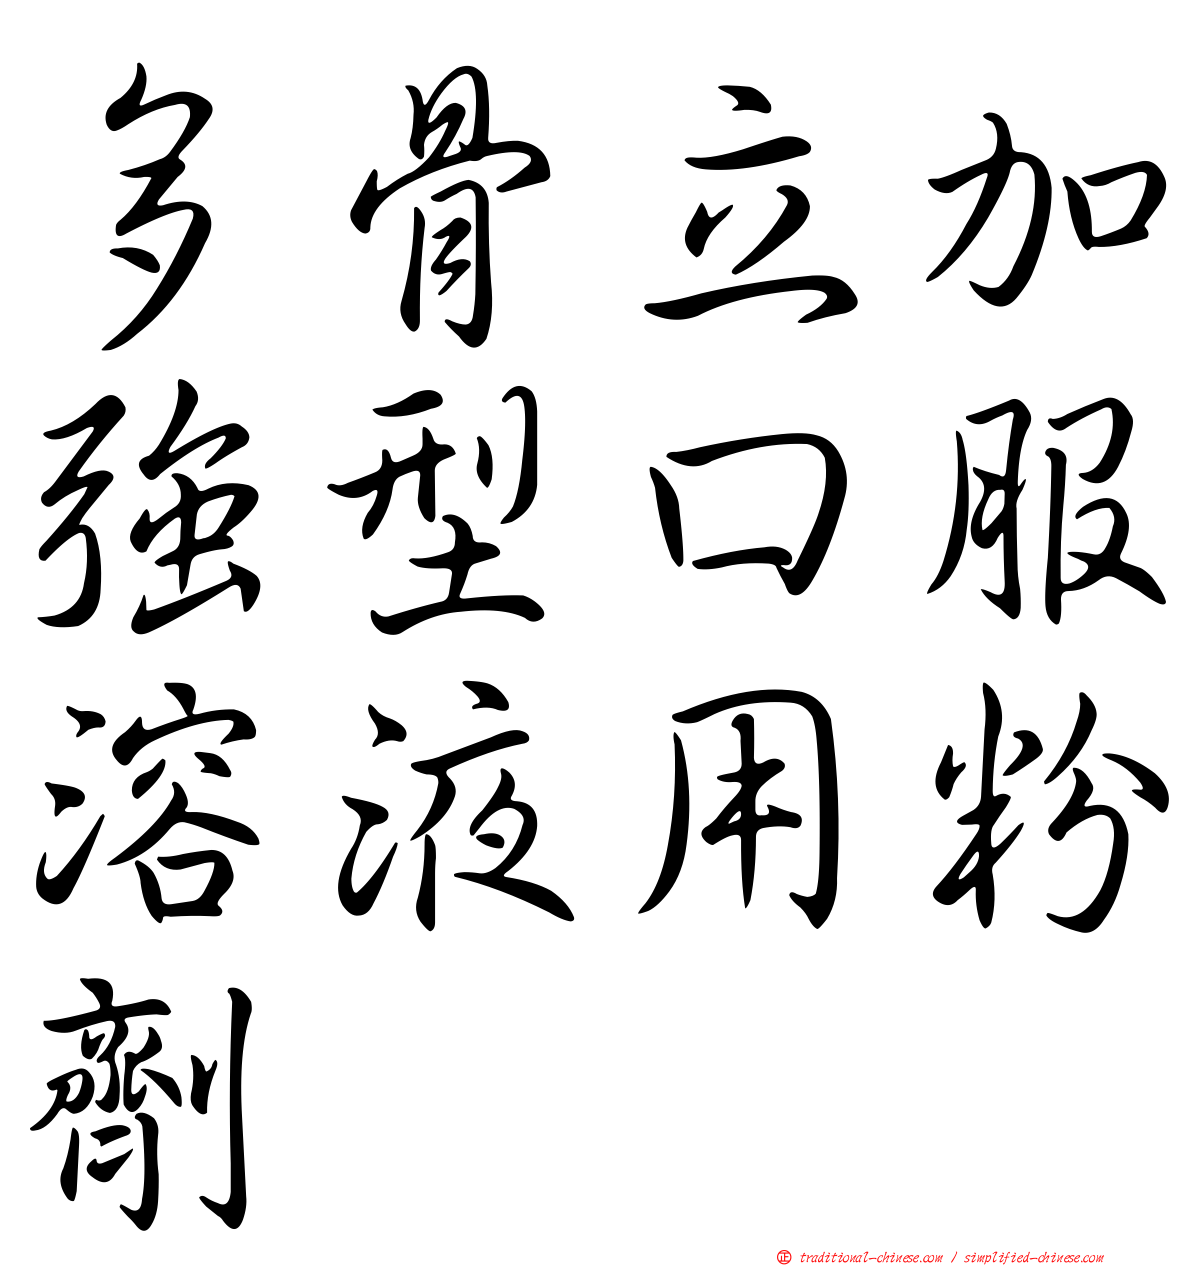 多骨立加
強型口服
溶液用粉
劑
正 traditional-chinese.com / simplified-chinese.com